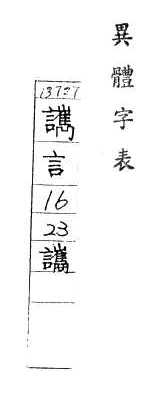 異體字表
13737
言
16
23